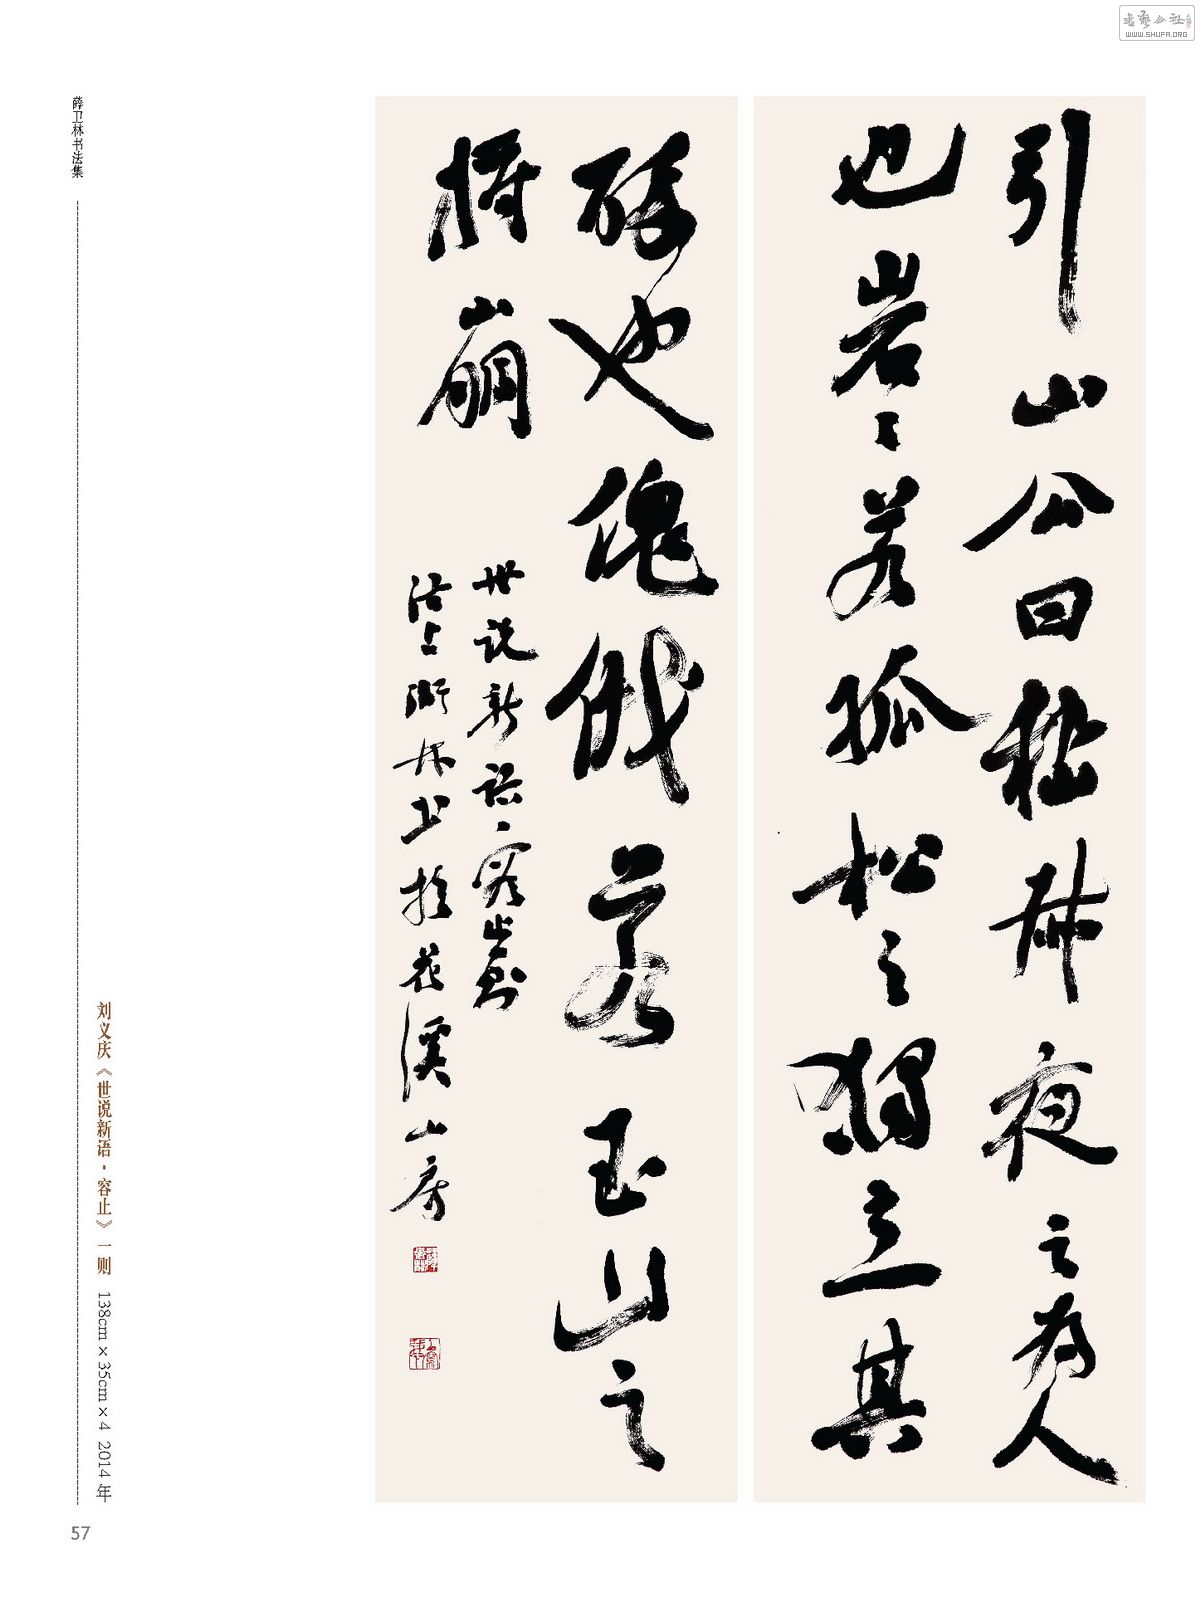 引山公曰嵇叔夜之为人
也岩〻若孤松之独立其
醉也傀俄若玉山之
将崩
世说新语·容止一则
卫林书于花溪山房
薛卫林书法集
刘义庆《世说新语·容止》一则 138cm×35cm×4 2014年
57
书艺公社
WWW.SHUFA.ORG